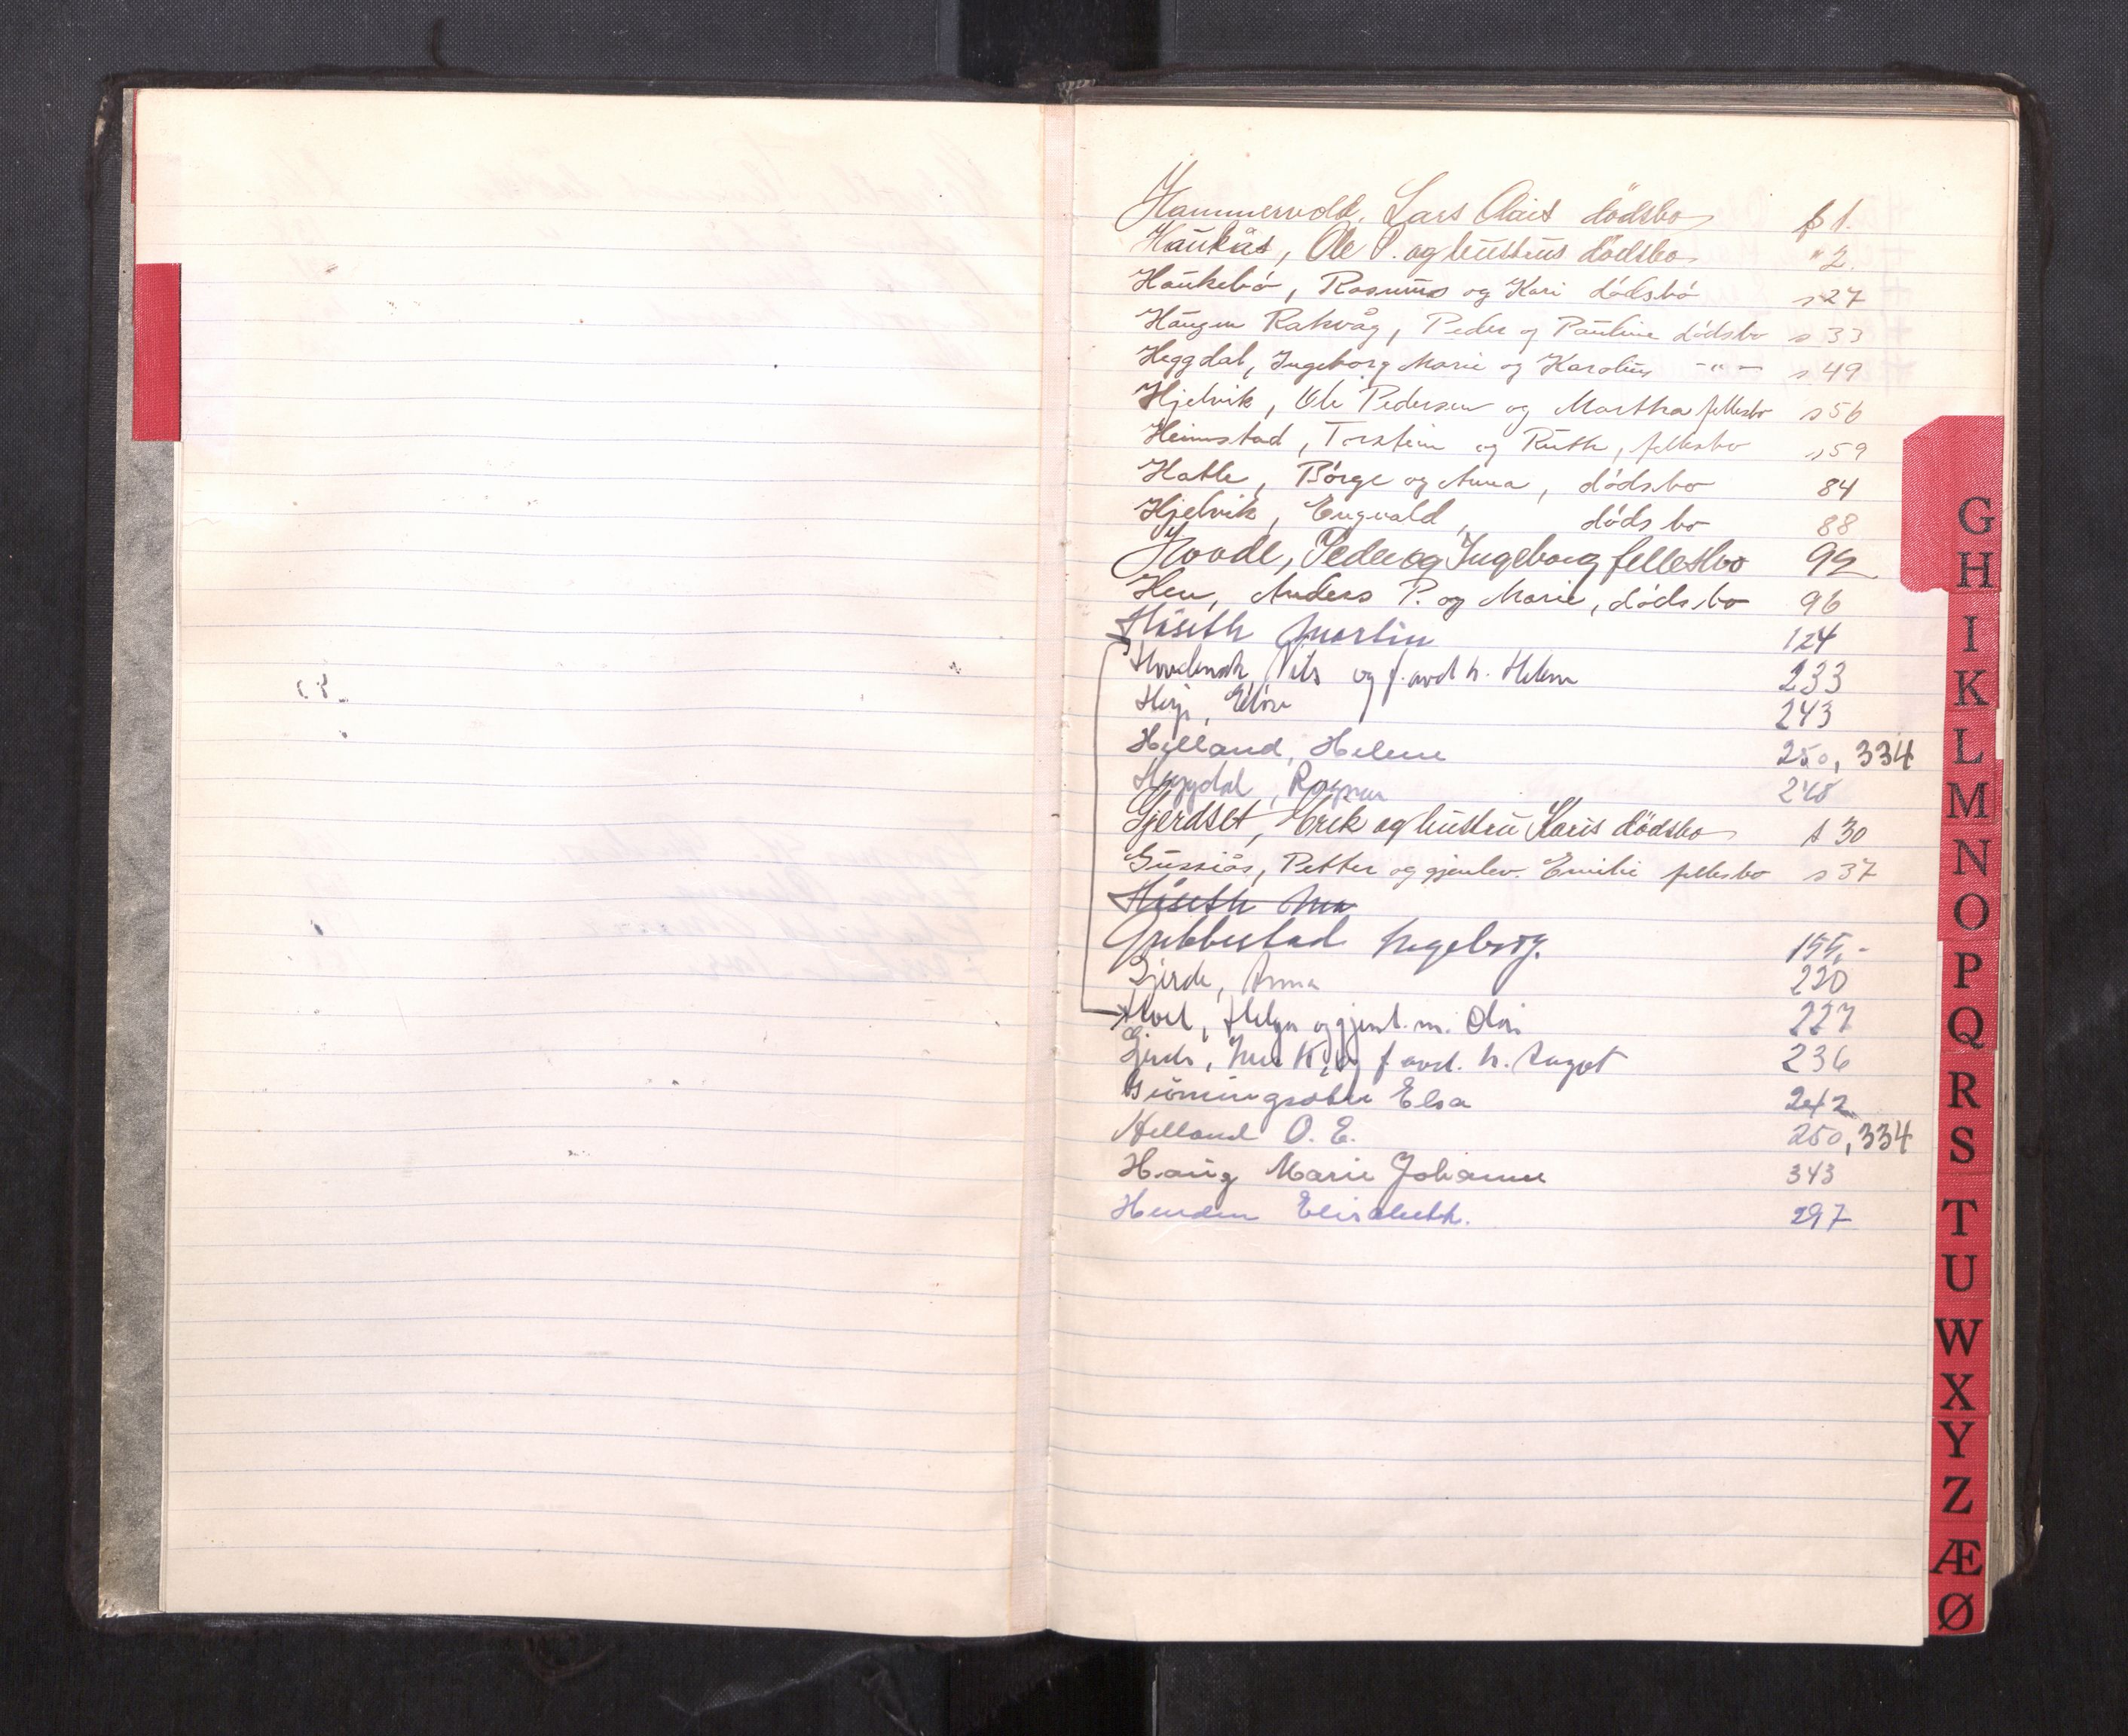 Hammervold, Lars Olais dödsbo s 1.
Haukås, Ole P. og hustrus dödsbo " 2.
Haukebö, Rasmus og Kari dödsbo s 27
Haugen Rakvåg, Peder og Pauline dödsbo s 33
Heggdal, Ingeborg Marie og Karolius -"- s 49
Hjelvik, Ole Pedersen og Martha fellesbo s 56
Heimstad, Torstein og Ruth, fellesbo s 59
Hatle, Börge og Anna, dödsbo 84
Hjelvik, Engvald, dödsbo 88
Hovde, Peder og Ingeborg fellesbo 92
Hen, Anders P. og Marie, dödsbo 96
Håseth Martin 124
Hovdenak Nils og f. avd h. Helene 233
243
Helland, Helene 250, 334
Heggdal, Ragnar 248
Gjerdset, Erek og hustru Karis dödsbo s 30
Gussiås, Petter og gjenlev. Emilie fellesbo s 37
Håseth Ma
Gribbestad Ingeborg. 155,-
Gjerde, Anna 220
Hoel, Helga og gjenl. m. 227
Gjerde, og f. avd. h. 236
Elsa 242
Helland O. E. 250, 334
Haug Marie Johanne 343
Henden Elisabeth. 297
G
H
I
K
L
M
N
O
P
Q
R
S
T
U
W
X
Y
Z
Æ
Ø